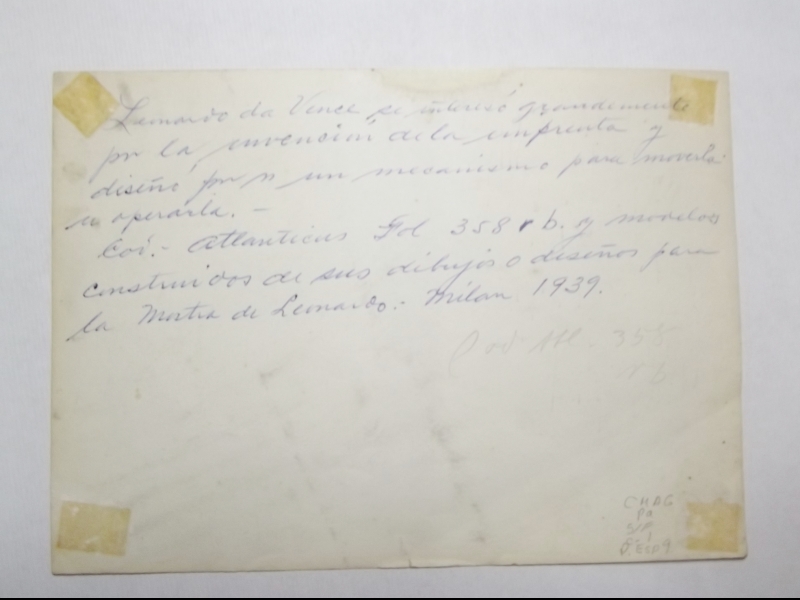 Leonardo da Vence se interesó grandemente
por la invencion de la imprenta y
diseño, por si un mecanismo para moverla
u operarla. -
Cod. - Atlanticus Fol 358 r b. y modelos
construidos de sus dibujos o diseños para
la Mostra de Leonardo. - Milan 1939.
Cod Atl. 358
r b
CHAG
Pa